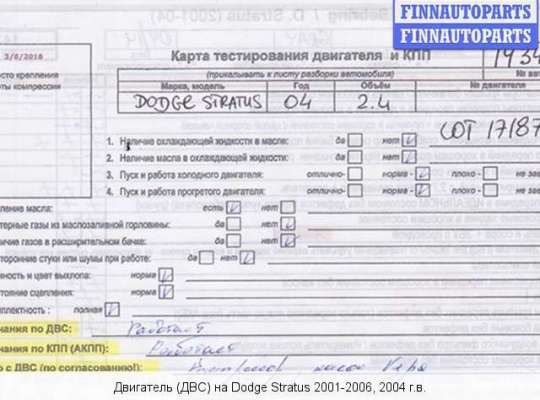 FINNAUTOPARTS
FINNAUTOPARTS
3/6/2018
Карта тестирования двигателя и КПП
(прикалывать к листу разборки автомобиля)
сто крепления
ты компрессии
Марка, модель Год Объём № двигателя
DODGE STRATUS 04 2.4
1. Наличие охлаждающей жидкости в масле: да нет
2. Наличие масла в охлаждающей жидкости: да нет
3. Пуск и работа холодного двигателя: отлично- норма - плохо -
4. Пуск и работа прогретого двигателя: отлично- норма - плохо -
ление масла: есть нет
терные газы из маслозаливной горловины: да нет
ичие газов в расширительном бачке: да нет
торонние стуки или шумы при работе: да нет
ность и цвет выхлопа: норма
тояние сцепления: норма
мплектность : полная
чания по ДВС: Работает
чания по КПП (АКПП): Работает
о с ДВС (по согласованию!):
Двигатель (ДВС) на Dodge Stratus 2001-2006, 2004 г.в.